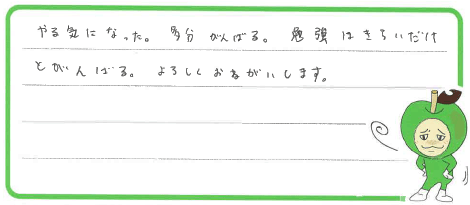 やる気になった。多分がんばる。勉強はきらいだけ
どがんばる。よろしくおねがいします。